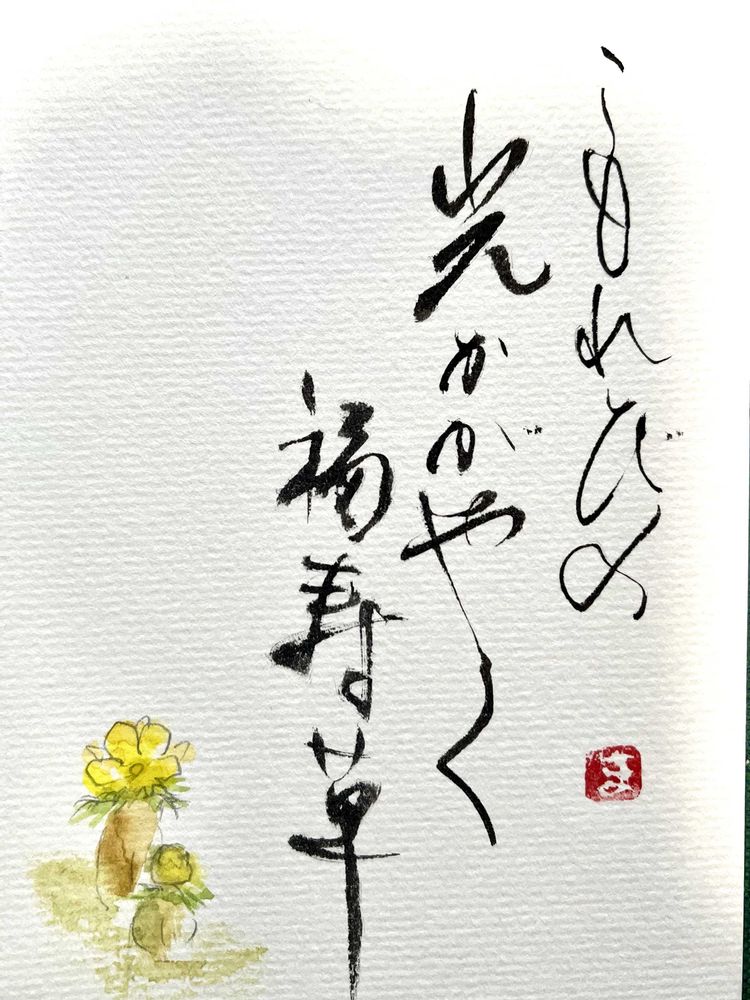 こもれびの
光かがやく
福寿草